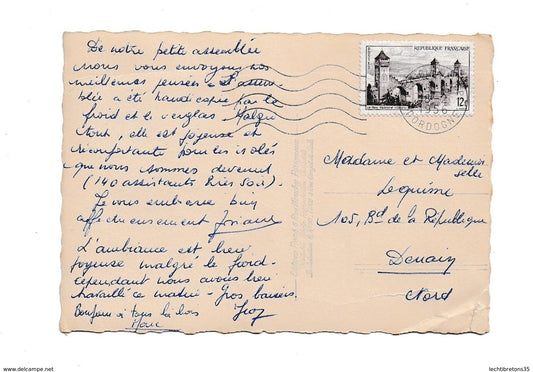 De notre petite assemblée
nous vous envoyons nos
meilleures pensées - L'assem
blée a été handicapée par le
froid et le verglas. Malgré
tout, elle est joyeuse et
réconfortante pour les isolés
que nous sommes devenus
(140 assistants Très bon).
Je vous embrasse bien
affectueusement
L'ambiance est bien
joyeuse malgré le froid-
cependant nous avons bien
travaillé ce matin - Gros baisers.
Bonjour à tous là-bas
REPUBLIQUE FRANÇAISE
12F
DORDOGNE
Madame et Mademoi
selle
Lequime
105, Bd de la République
Denain
Nord
www.delcampe.net
lechtibretons35